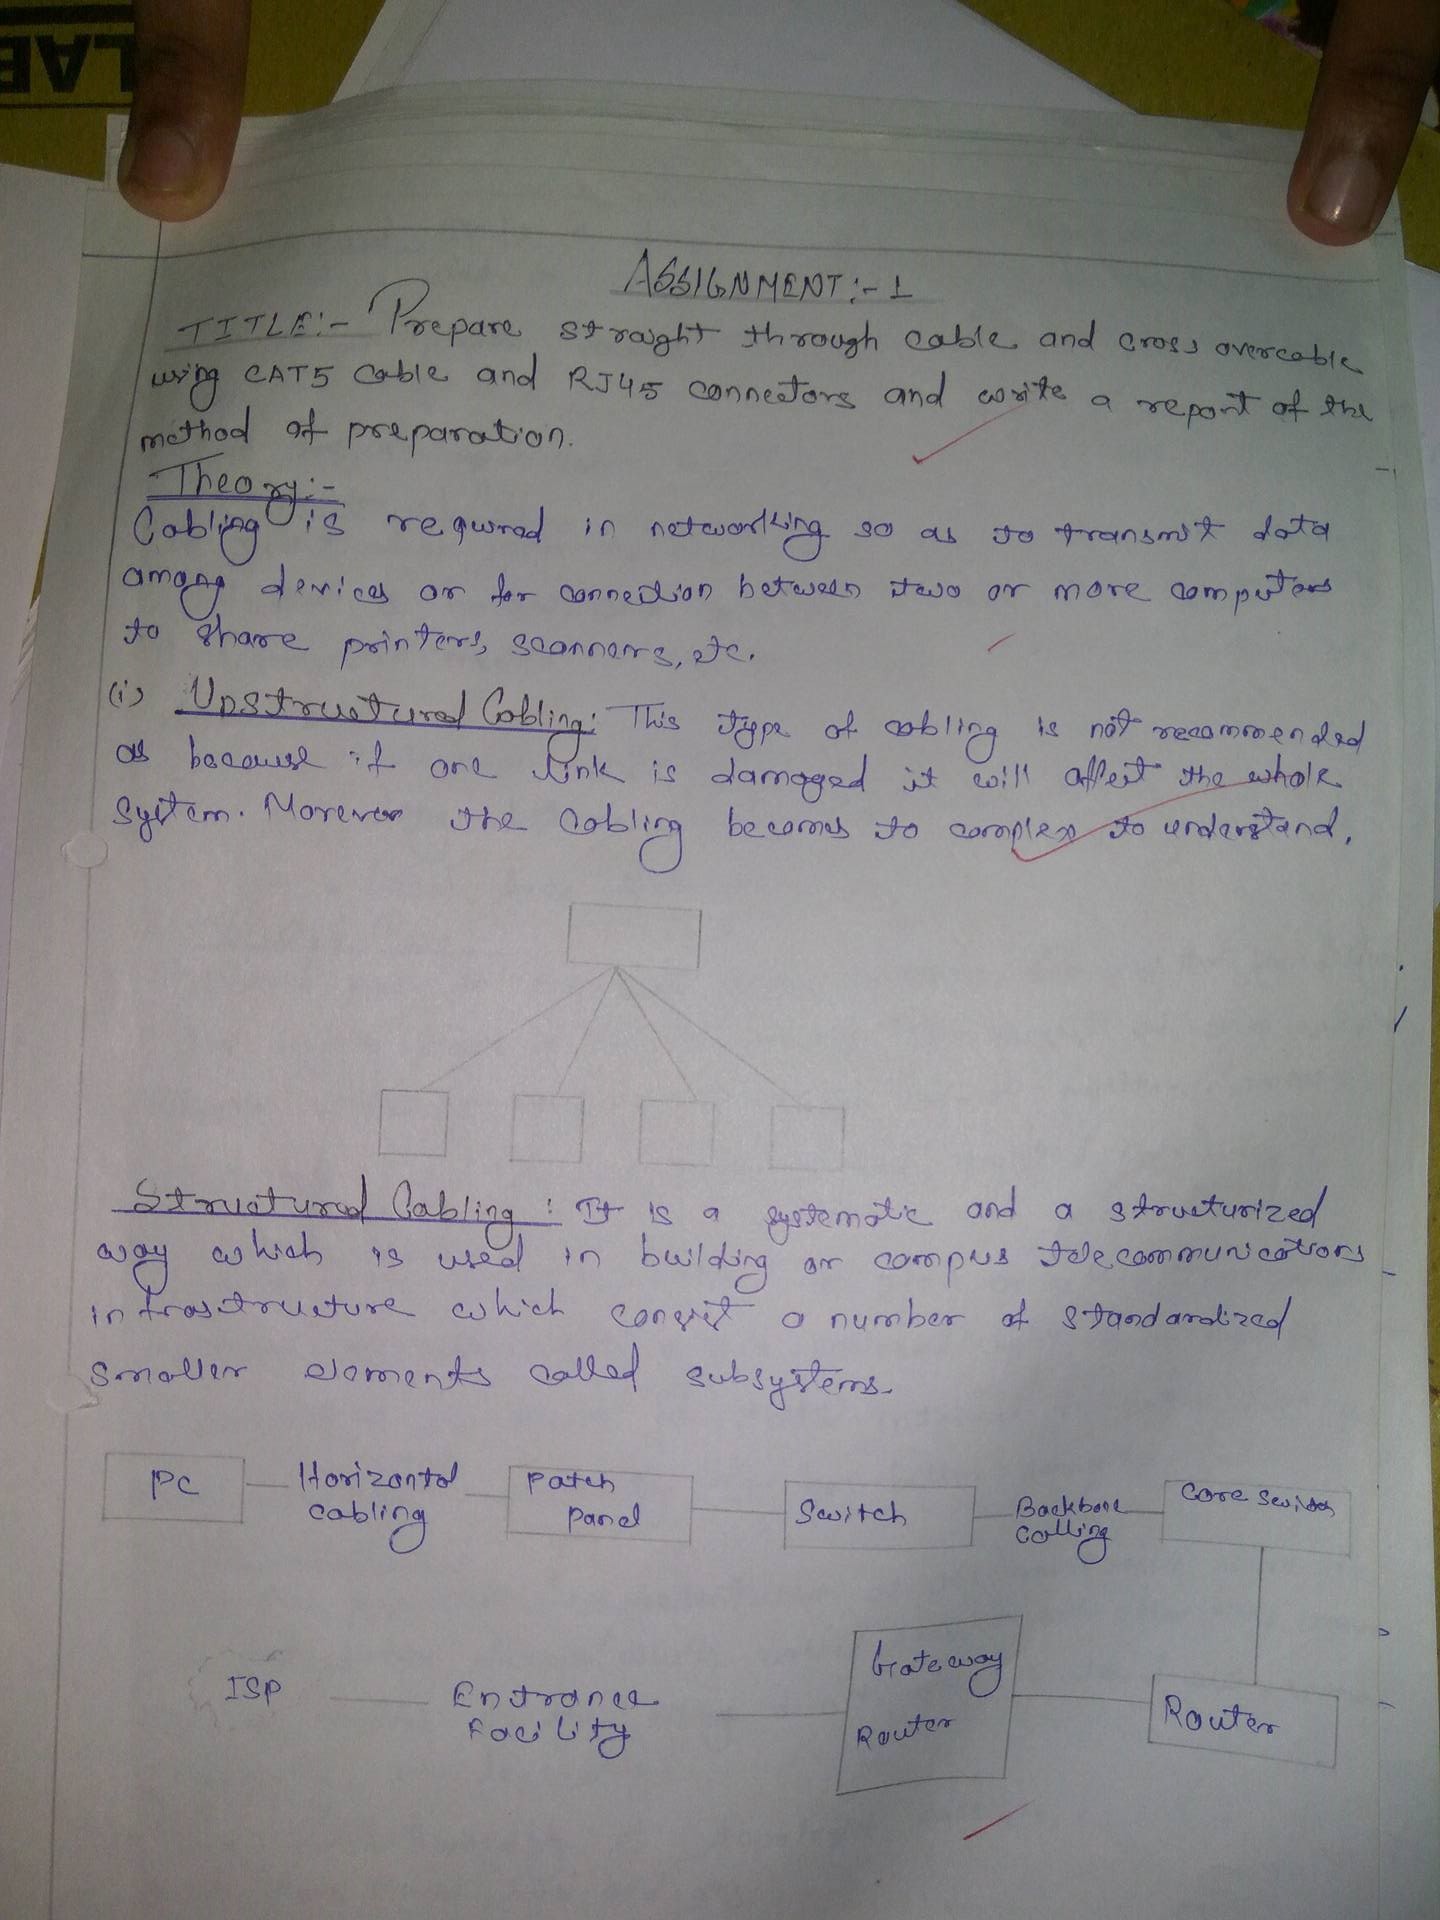 LAB
ASSIGNMENT:- 1
TITLE:- Prepare straight through cable and cross overcable
using CAT5 cable and RJ45 connectors and write a report of the
method of preparation.
Theory:-
Cabling is required in networking so as to transmit data
among devices or for connection between two or more computers
to share printers, scanners, etc.
(i) Unstructured Cabling: This type of cabling is not recommended
as because if one link is damaged it will affect the whole
system. Morever the cabling becomes to complex to understand.
Structured Cabling: It is a systematic and a structurized
way which is used in building or campus telecommunications
infrastructure which consist a number of standardized
smaller elements called subsystems.
PC
Horizontal
cabling
Patch
Panel
Switch
Backbone
Calling
Core Switch
ISP
Entrance
Facility
Gateway
Router
Router